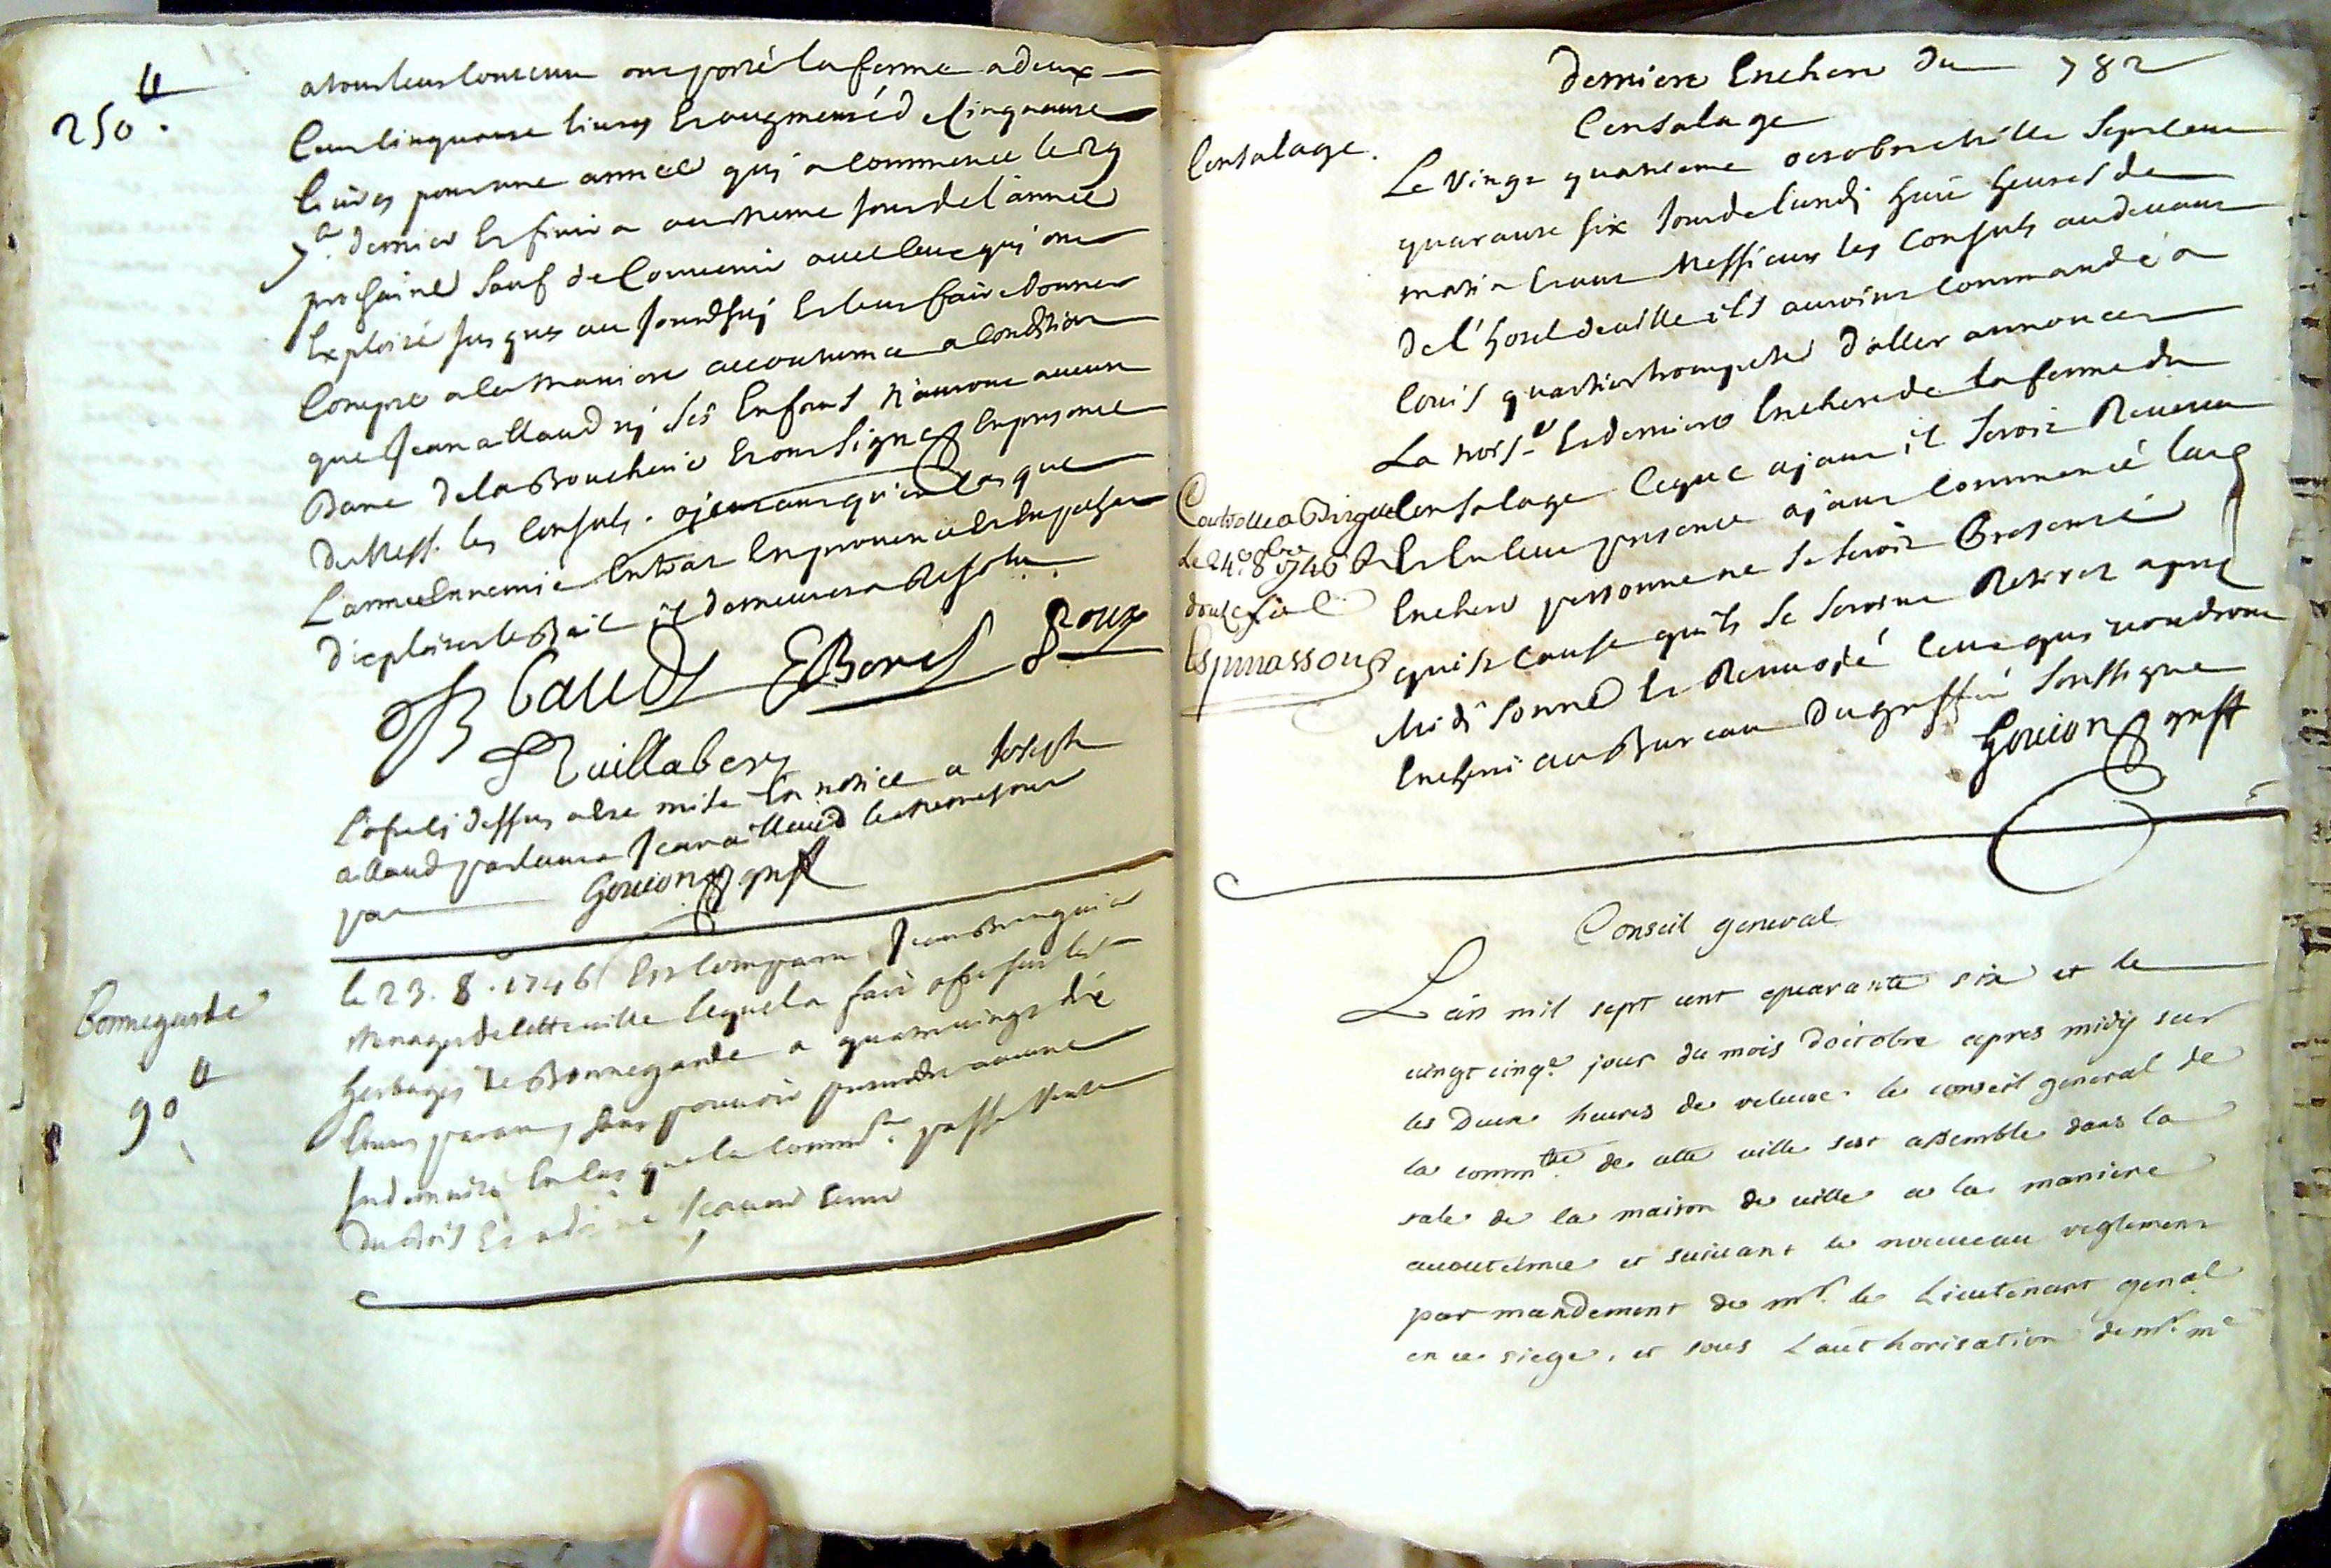 250 ₶.
a tous leur contenu ont porté la ferme a deux
Cent cinquante livres Et augmenté de Cinquante
livres pour une année qui a commencé le 29
7.bre dernier Et finira au meme jour de l'année
prochaine Sauf de Convenir avec ceux qui ont
Exploité jusques au jourdhuj Et leur faire donner
Compte a la maniere accoutumée a condition
que Jean allaud nj ses Enfans n'auront aucune
part de la Boucherie Et ont signé En presence
de Mess. les Consuls. ajoutant qu'en Cas que
L'armée Ennemie Entrat En provence Et Empechat
d'exploiter le Bail il demeurera Resolu
Caudy EBoref Roux
Guillabert
L'ofre cj dessus a été mise En notice a Joseph
allaud parlant a Jean allaud le meme jour
par Gouion greff
Bonnegarde
90 ₶
le 23. 8. 1746 Est Comparu Jean Bruguier
Menager de Cette ville lequel a fait ofre sur les
herbages de Bonnegarde a quatrevingt dix
livres par an, sans pouvoir pretendre aucune
Indemnité En Cas que la Comm.té passe vente
du Bois Et a dit ne scavoir Ecrire
derniere Enchere du 782
Censalage
Censalage.
Le vingt quatrieme octobre Mille Sept Cent
quarante six Jour de lundi huit heures de
matin Etant Messieurs les Consuls au devant
de l'hotel de ville ils auroint Commandé a
louis quartier trompete d'aller annoncer
La trois.e Et derniere Enchere de la ferme du
Censalage lequel ajant il seroit Revenu
Et En leur presence ajant Commencé lad
Enchere personne ne se seroit Presenté
qui est Cause qu'ils se seroint Retirez apres
Midi sonné Et Renvoyé Ceux qui voudront
Encherir au Bureau du greffié soussigné
Gouion greff
Controllé a
Le 24.e 8bre 1746
douze sols
Espinassoux
Conseil general
L'an mil sept cent quarante six et le
vingt cinq.e jour du mois d'octobre apres midy sur
les Deux heures de relevée le conseil general de
la comm.té de cette ville sest assemblé dans la
sale de la maison de ville a la maniere
acoutumée et suivant le nouveau reglement
par mandement de mr. le Lieutenant genal
en ce siege, et sous L'authorisation de mr. me